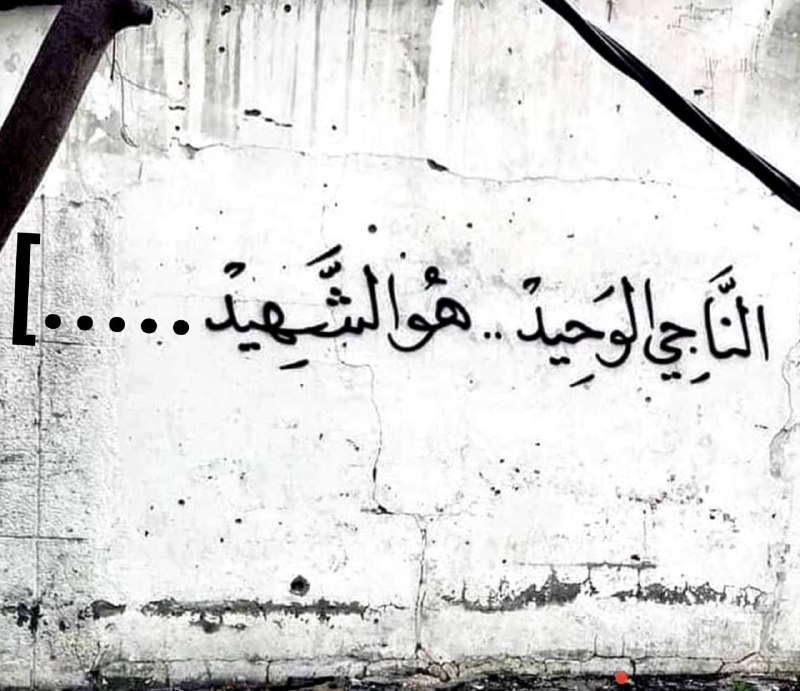 النَّاجِي الوَحِيدْ .. هُوَ الشَّهِيدْ ..... [